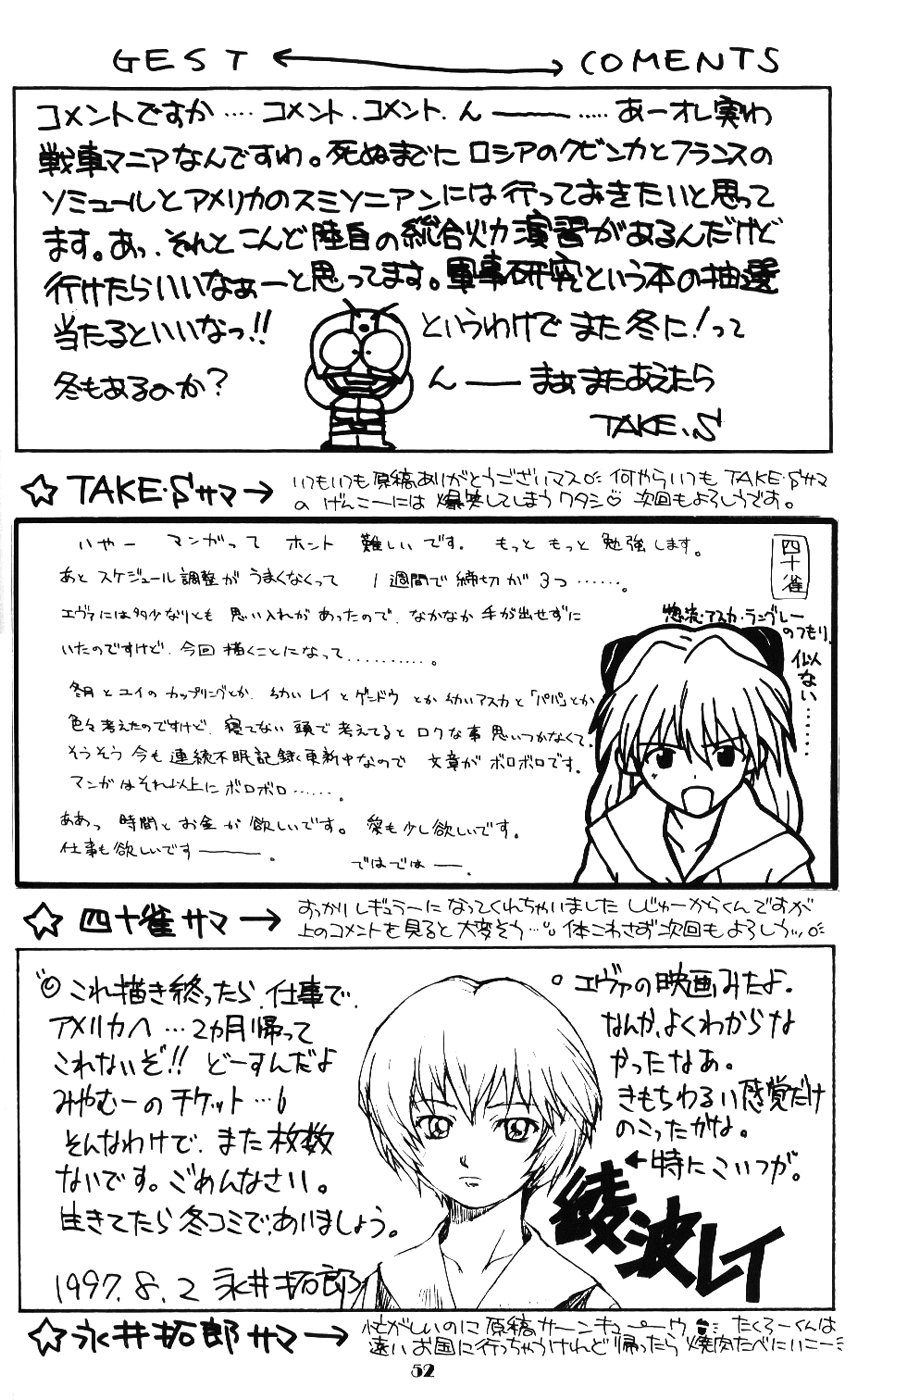 GEST ←→ COMENTS
コメントですか‥‥コメント、コメント、ん――‥‥あーオレ実わ
戦車マニアなんですわ。死ぬまでにロシアのクビンカとフランスの
ソミュールとアメリカのスミソニアンには行っておきたいと思って
ます。あっ、それとこんど陸自の総合火力演習があるんだけど
行けたらいいなぁーと思ってます。軍事研究という本の抽選
当たるといいなっ!!
というわけでまた冬に!って
冬もあるのか?
ん――まぁまたあえたら
TAKE.S
☆TAKE・Sサマ→
いつもいつも原稿ありがとうございマス 何やらいつもTAKE・Sサマ
のげんこーには爆笑してしまうワタシ♡ 次回もよろしうです。
四十雀
いやー マンガって ホント 難しいです。 もっと もっと 勉強します。
あと スケジュール調整が うまくなくって 1週間で締切が3つ‥‥‥。
エヴァには多少なりとも 思い入れが あったので、なかなか 手が出せずに
いたのですけど、今回 描くことになって‥‥‥‥‥。
冬月とユイのカップリングとか、幼いレイとゲンドウ とか幼いアスカと「パパ」とか
色々考えたのですけど、寝てない頭で考えてるとロクな事思いつかなくて、
そうそう 今も 連続不眠記録更新中なので 文章が ボロボロです。
マンガはそれ以上に ボロボロ‥‥‥。
ああっ 時間と お金が 欲しいです。 愛も少し欲しいです。
仕事も欲しいです――。
ではでは―。
惣流・アスカ・ラングレー
のつもり。
似ない‥‥‥
☆四十雀サマ→
すっかりレギュラーになってくれちゃいました しじゅーからくんですが
上のコメントを見ると大変そう‥ 体こわさず次回もよろしう‥
◎これ描き終ったら、仕事で、
アメリカへ…2カ月帰って
これないぞ!! どーすんだよ
みやむーのチケット…
そんなわけで、また枚数
ないです。ごめんなさい。
生きてたら冬コミで、あいましょう。
1997.8.2 永井拓郎
○エヴァの映画みたよ。
なんか、よくわからな
かったなぁ。
きもちわるい感覚だけ
のこったかな。
←特にこいつが。
綾波レイ
☆永井拓郎サマ→
忙がしいのに原稿サーンキューウ たくろーくんは
遠いお国に行っちゃうけれど帰ったら焼肉たべにいこー
52